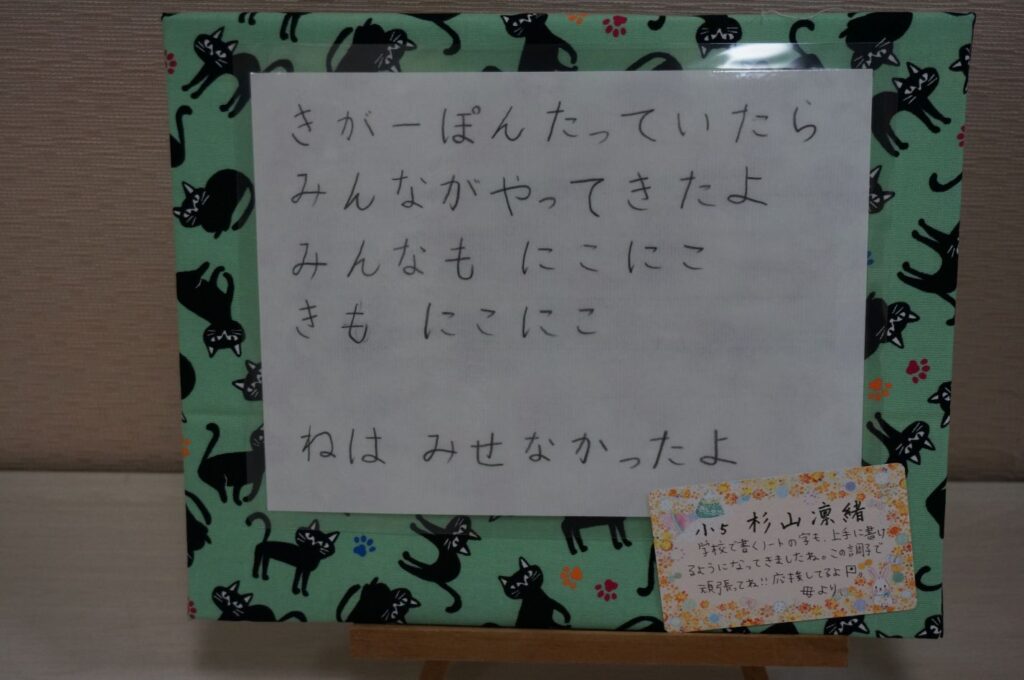 きがーぽんたっていたら
みんながやってきたよ
みんなも にこにこ
きも にこにこ
ねは みせなかったよ
小5 杉山凛緒
学校で書くノートの字も、上手に書け
るようになってきましたね。この調子で
頑張ってね!!応援してるよ
母より